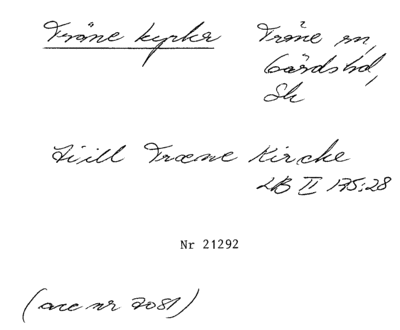 Träne kyrka Träne sn,
Gärds hd,
Sk
till Træne Kirche
LB II 175:28
Nr 21292
(acc nr 7081)